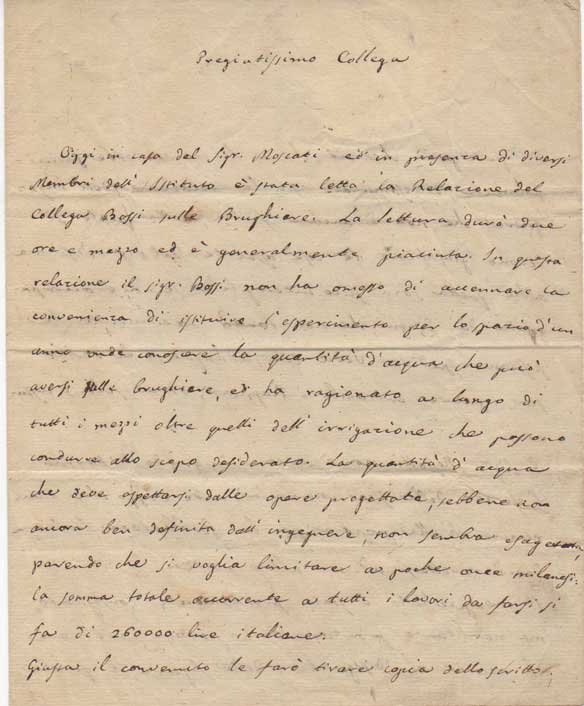 Pregiatissimo Collega
Oggi in casa del Sigr. Moscati ed in presenza di diversi
Membri dell' Istituto è stata letta la Relazione del
Collega Bossi sulle Brughiere. La lettura durò due
ore e mezzo ed è generalmente piaciuta. In questa
relazione il sigr. Bossi non ha omesso di accennare la
convenienza di istituire l'esperimento per lo spazio d'un
anno onde conoscere la quantità d'acqua che può
aversi sulle brughiere, ed ha ragionato a lungo di
tutti i mezzi oltre quelli dell' irrigazione che possono
condurre allo scopo desiderato. La quantità d'acqua
che deve aspettarsi dalle opere progettate, sebbene non
ancora ben definita dall' ingegnere, non sembra esagerata,
parendo che si voglia limitare a poche once milanesi:
la somma totale occorrente a tutti i lavori da farsi si
fa di 260000 lire italiane.
Giusta il convenuto le farò tirare copia dello scritto